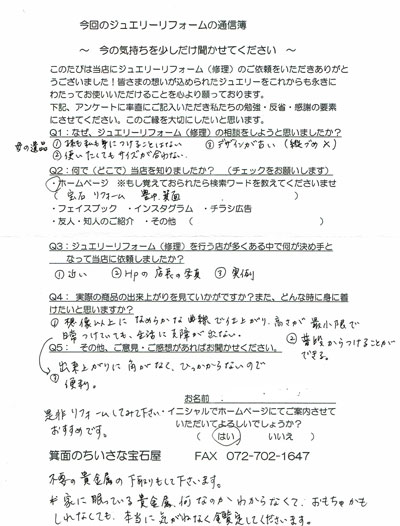 今回のジュエリーリフォームの通信簿
～ 今の気持ちを少しだけ聞かせてください ～
このたびは当店にジュエリーリフォーム（修理）のご依頼をいただきありがと
うございました！皆さまの想いが込められたジュエリーをこれからも永きに
わたってお使いいただけることを心より願っております。
下記、アンケートに率直にご記入いただき私たちの勉強・反省・感謝の要素
にさせてください。このご縁を大切にしたいと思います。
Q1：なぜ、ジュエリーリフォーム（修理）の相談をしようと思いましたか？
母の遺品
①娘も私も身につけることはない ③デザインが古い（縦づめ×）
②使いたくてもサイズが合わない。
Q2：何で（どこで）当店を知りましたか？ （チェックをお願いします）
・ホームページ ※もし覚えておられたら検索ワードを教えてくださいませ
（ 宝石 リフォーム 豊中,箕面 ）
・フェイスブック ・インスタグラム ・チラシ広告
・友人・知人のご紹介 ・その他（ ）
Q3：ジュエリーリフォーム（修理）を行う店が多くある中で何が決め手と
なって当店に依頼しましたか？
①近い ②HPの店長の写真 ③実例
Q4： 実際の商品の出来上がりを見ていかがですか？また、どんな時に身に着
けたいと思いますか？
①想像以上に なめらかな曲線で仕上がり,高さが 最小限で
日時つけていても,生活に支障が出ない。 ②普段からつけることが
できる。
Q5： その他、ご意見・ご感想があればお聞かせください。
③出来上がりに 角がなく,ひっかからないので
便利。
お名前
是非リフォームしてみて下さい。
おすすめです。
・イニシャルでホームページにてご案内させて
いただいてよろしいでしょうか？
（ はい いいえ ）
箕面のちいさな宝石屋 FAX 072-702-1647
不要の貴金属の下取りもして下さいます。
※家に眠っている貴金属、何なのかわからなくて、おもちゃかも
しれなくても、本当に気がねなく鑑定してくださいます。